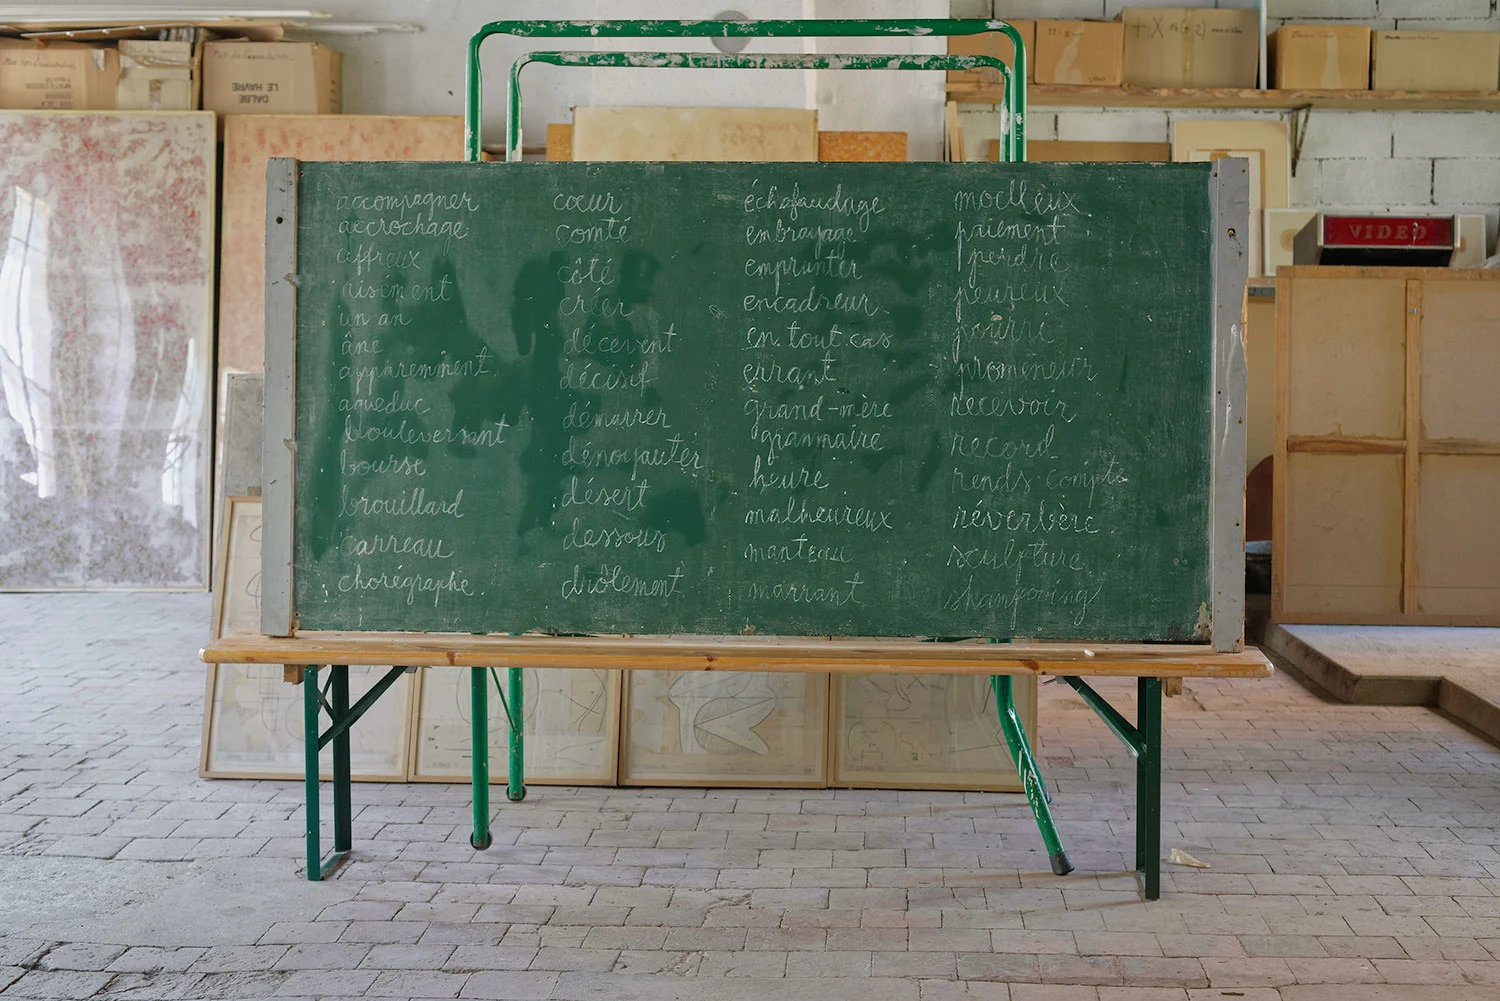 DALBE
LE HAVRE
VIDEO
accompagner
accrochage
affreux
aisément
un an
âne
apparemment.
aqueduc
bouleversant
bourse
brouillard
carreau
chorégraphe.
cœur
comté
côté
créer
décevent
décisif
démarrer
dénoyauter
désert
dessous
drôlement
échafaudage
embrayage
emprunter
encadreur
en tout cas
errant
grand-mère
grammaire
heure
malheureux
manteau
marrant
moelleux
paiement
perdre
peureux
pourri
promeneur
recevoir
record
rends compte
réverbère
sculpture
shampooing